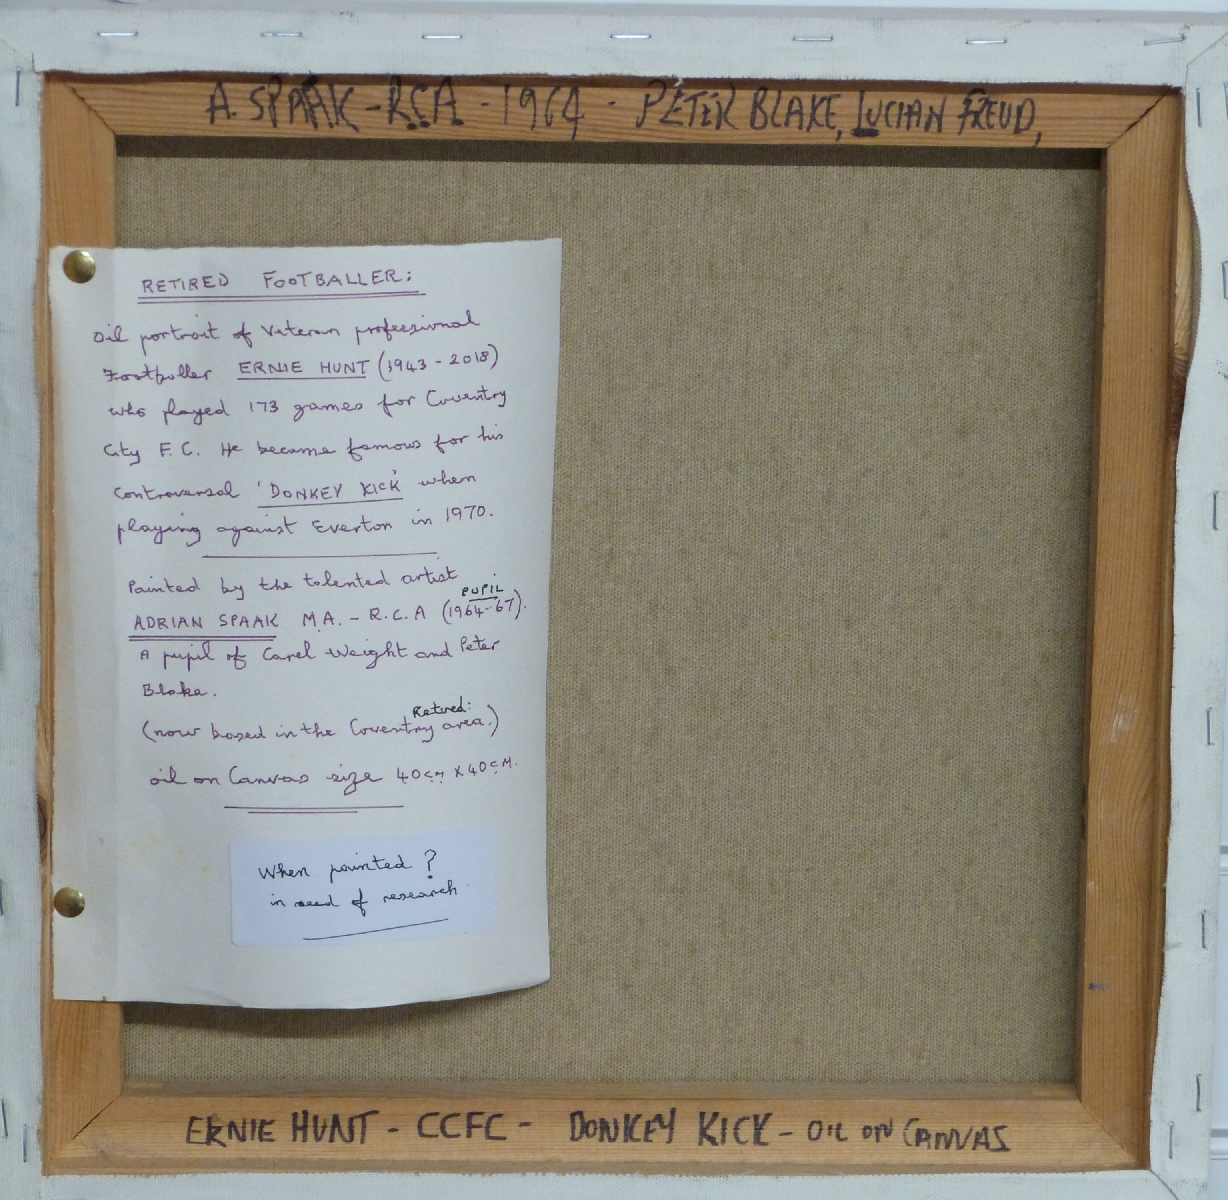 A. SPAAK - RCA - 1964 - PETER BLAKE, LUCIAN FREUD,
RETIRED FOOTBALLER:
oil portrait of Veteran professional
Footballer ERNIE HUNT (1943 - 2018)
who played 173 games for Coventry
City F.C. He became famous for his
Controversal 'DONKEY KICK' when
playing against Everton in 1970.
Painted by the talented artist
PUPIL
ADRIAN SPAAK M.A. - R.C.A (1964-67).
A pupil of Carel Weight and Peter
Blake.
Retired:
(now based in the Coventry area.)
oil on Canvas size 40cm X 40CM.
When painted ?
in need of research
ERNIE HUNT - CCFC - DONKEY KICK - OIL ON CANVAS